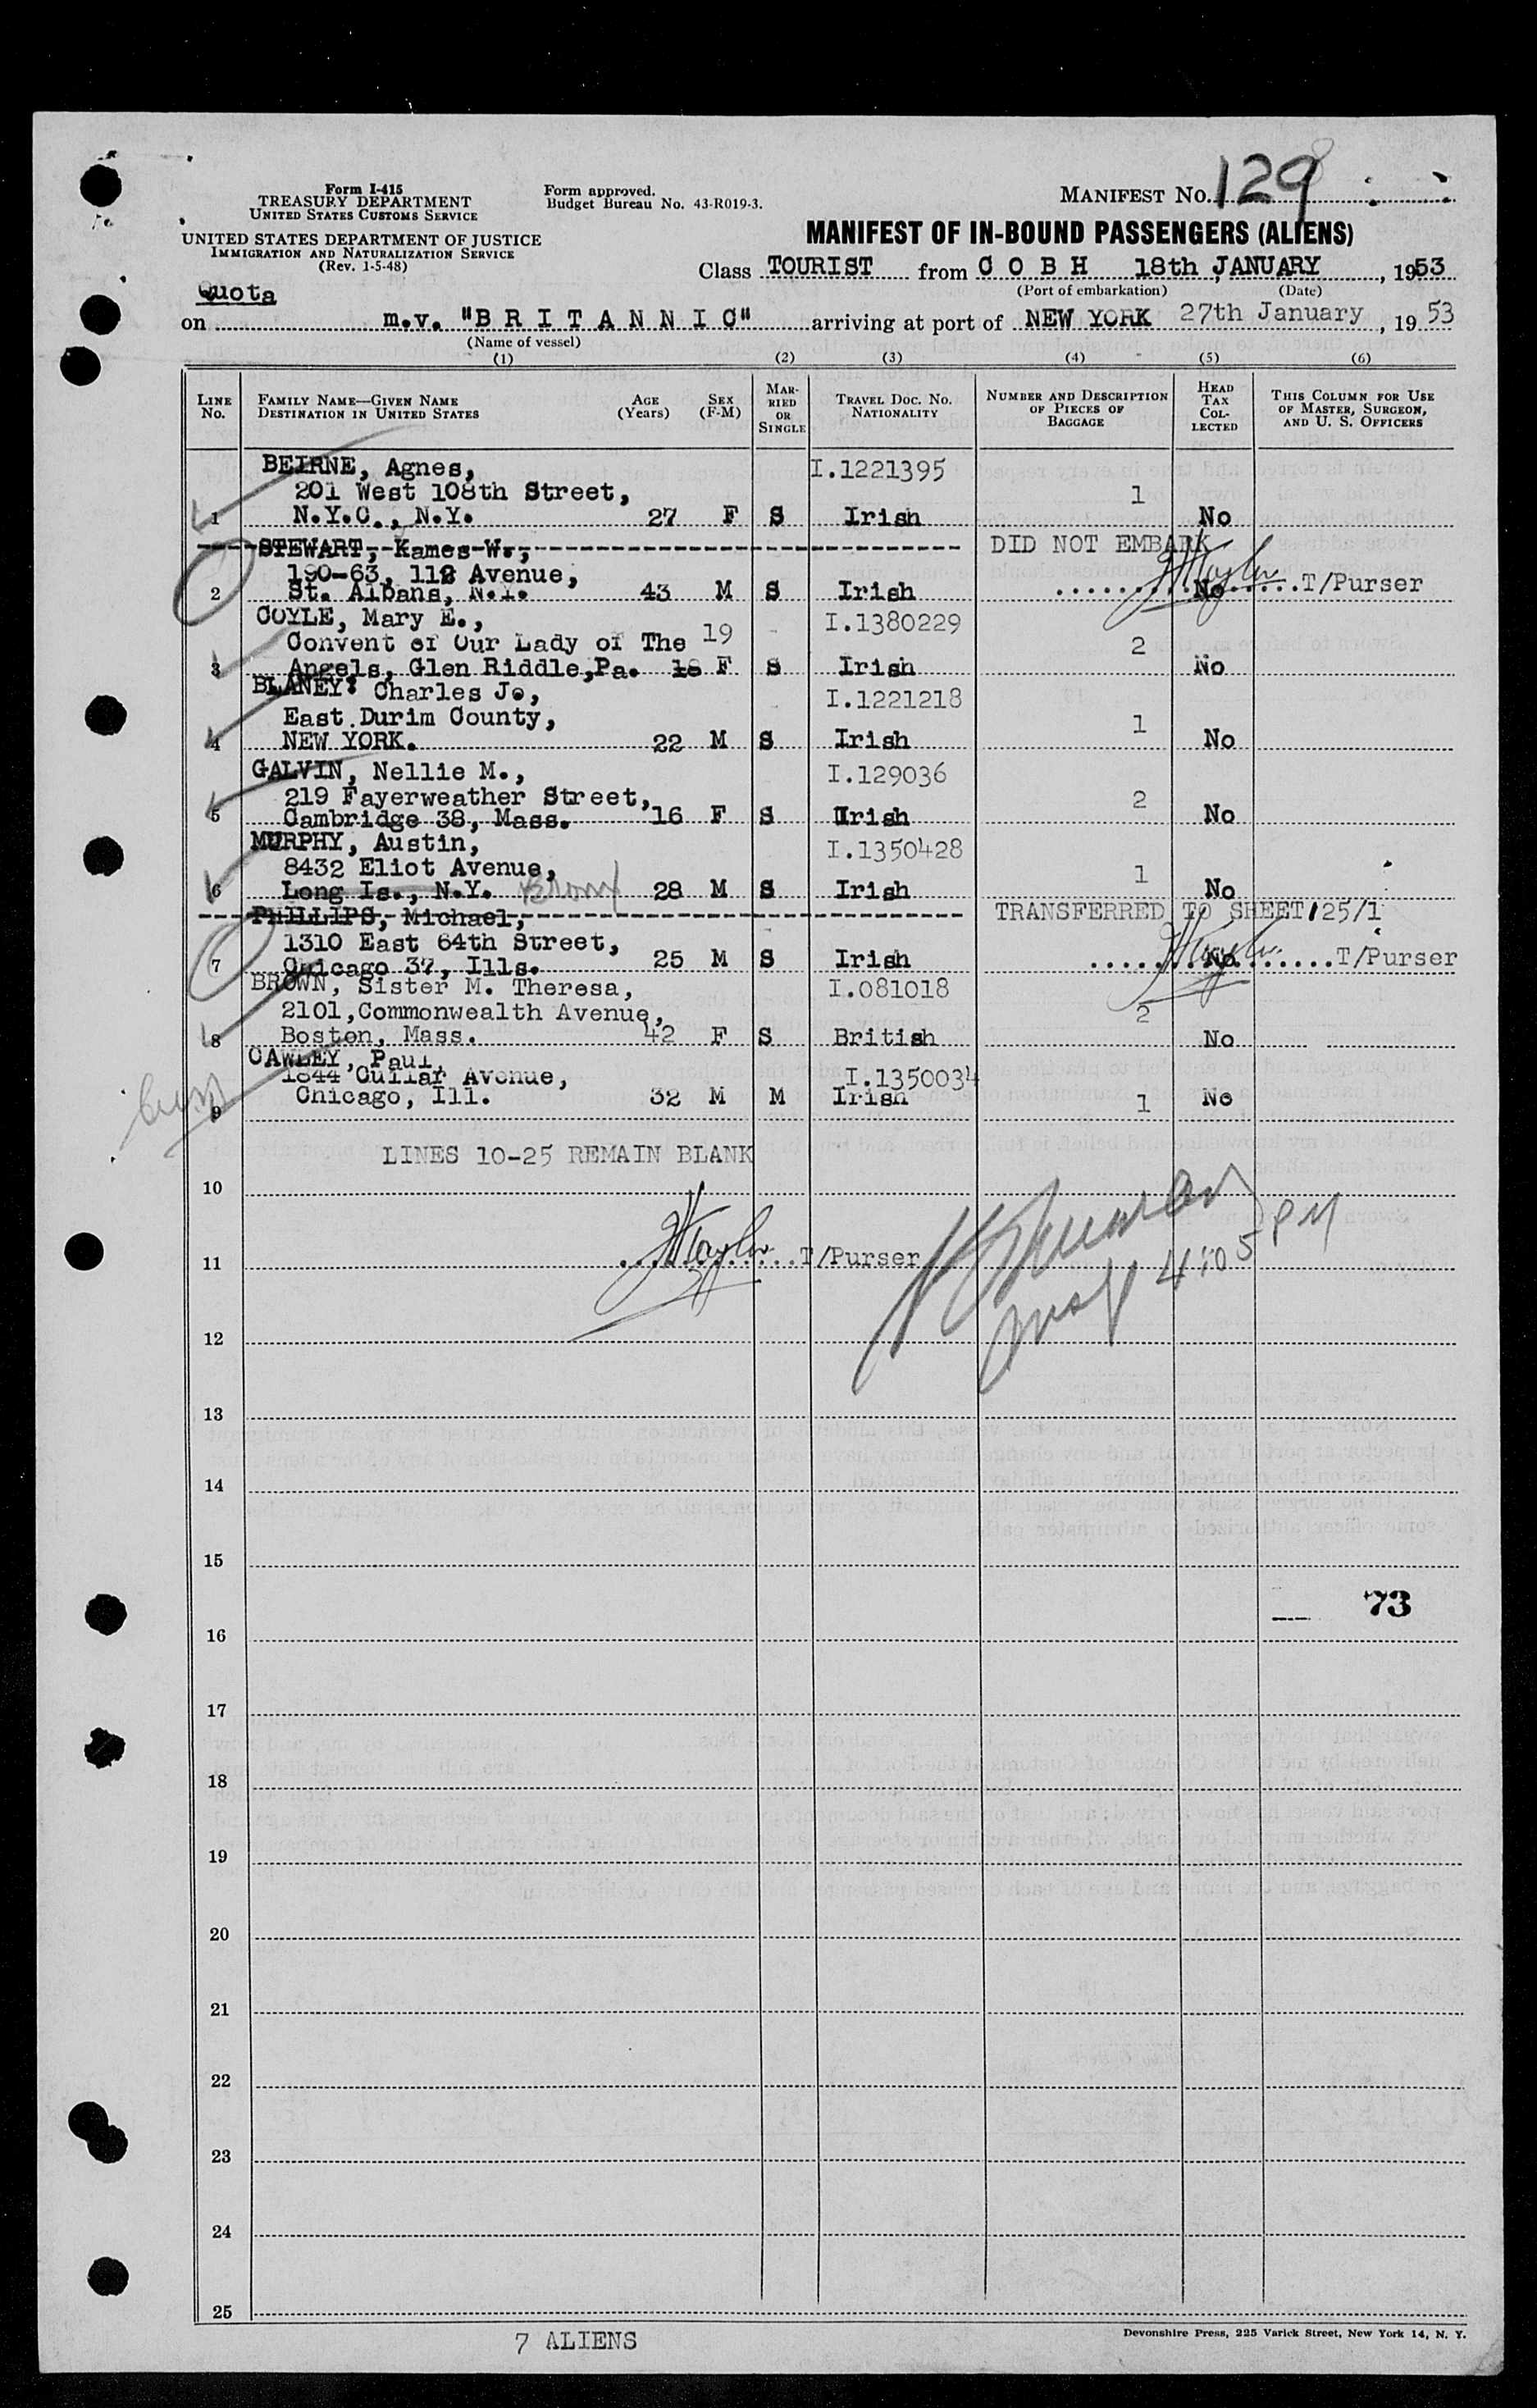 Form I-415
TREASURY DEPARTMENT
UNITED STATES CUSTOMS SERVICE
UNITED STATES DEPARTMENT OF JUSTICE
IMMIGRATION AND NATURALIZATION SERVICE
(Rev. 1-5-48)
Form approved.
Budget Bureau No. 43-R019-3.
MANIFEST No. 129
MANIFEST OF IN-BOUND PASSENGERS (ALIENS)
Class TOURIST from C O B H 18th JANUARY, 1953
(Port of embarkation) (Date)
Quota
on m.v. "B R I T A N N I C" arriving at port of NEW YORK 27th January, 19 53
(Name of vessel)
(1) (2) (3) (4) (5) (6)
LINE No. FAMILY NAME—GIVEN NAME DESTINATION IN UNITED STATES AGE (Years) SEX (F-M) MARRIED OR SINGLE TRAVEL DOC. NO. NATIONALITY NUMBER AND DESCRIPTION OF PIECES OF BAGGAGE HEAD TAX COLLECTED THIS COLUMN FOR USE OF MASTER, SURGEON, AND U. S. OFFICERS
BEIRNE, Agnes, I.1221395
201 West 108th Street, 1
1 N.Y.C., N.Y. 27 F S Irish No
STEWART, Kames W., DID NOT EMBARK
190-63, 112 Avenue,
2 St. Albans, N.Y. 43 M S Irish No T/Purser
COYLE, Mary E., I.1380229
Convent of Our Lady of The 19 2
3 Angels, Glen Riddle,Pa. 18 F S Irish No
BLANEY: Charles J., I.1221218
East.Durim County, 1
4 NEW YORK. 22 M S Irish No
GALVIN, Nellie M., I.129036
219 Fayerweather Street, 2
5 Cambridge 38, Mass. 16 F S Irish No
MURPHY, Austin, I.1350428
8432 Eliot Avenue, 1
6 Long Is., N.Y. Bronx 28 M S Irish No
PHILLIPS, Michael, TRANSFERRED TO SHEET 125/1
1310 East 64th Street,
7 Chicago 37, Ills. 25 M S Irish No T/Purser
BROWN, Sister M. Theresa, I.081018
2101,Commonwealth Avenue, 2
8 Boston, Mass. 42 F S British No
CAWLEY, Paul,
1844 Cullar Avenue, I.1350034
9 Chicago, Ill. 32 M M Irish 1 No
LINES 10-25 REMAIN BLANK
10
11 T/Purser
4:05 PM
12
13
14
15
73
16
17
18
19
20
21
22
23
24
25
7 ALIENS
Devonshire Press, 225 Varick Street, New York 14, N. Y.